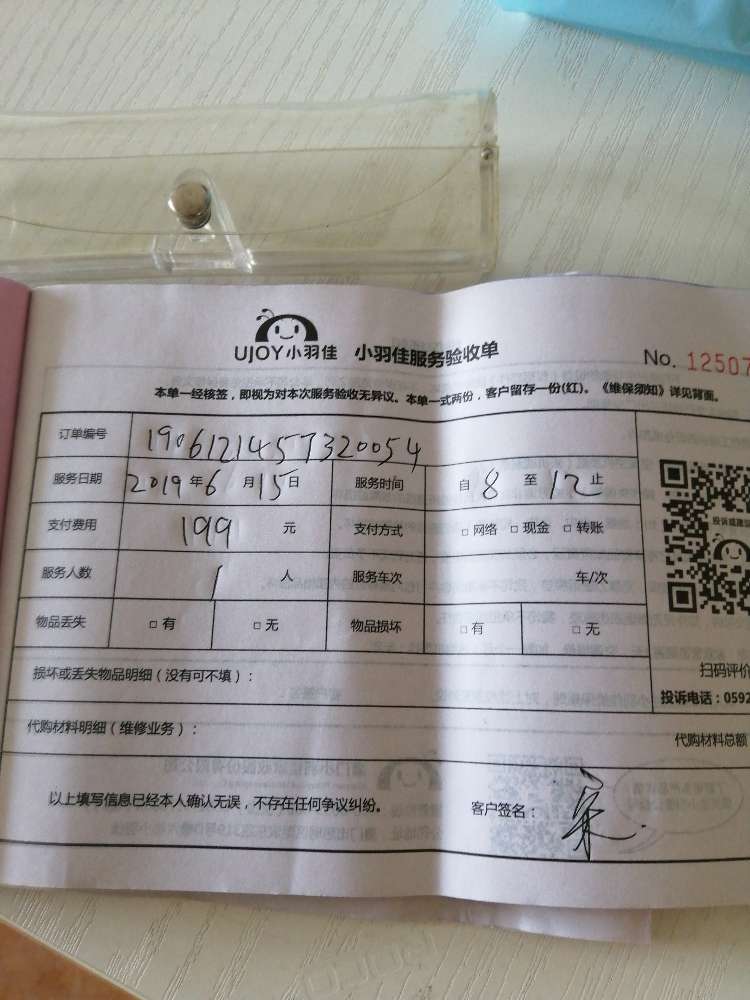 UJOY小羽佳 小羽佳服务验收单
No. 12507
本单一经核签，即视为对本次服务验收无异议。本单一式两份，客户留存一份(红)。《维保须知》详见背面。
订单编号 1906121457320054
服务日期 2019年6月15日 服务时间 自8至12止
支付费用 199元 支付方式 □网络 □现金 □转账
服务人数 1人 服务车次 车/次
物品丢失 □有 □无 物品损坏 □有 □无
扫码评价
投诉电话：0592
损坏或丢失物品明细（没有可不填）：
代购材料明细（维修业务）：
代购材料总额
以上填写信息已经本人确认无误，不存在任何争议纠纷。 客户签名：